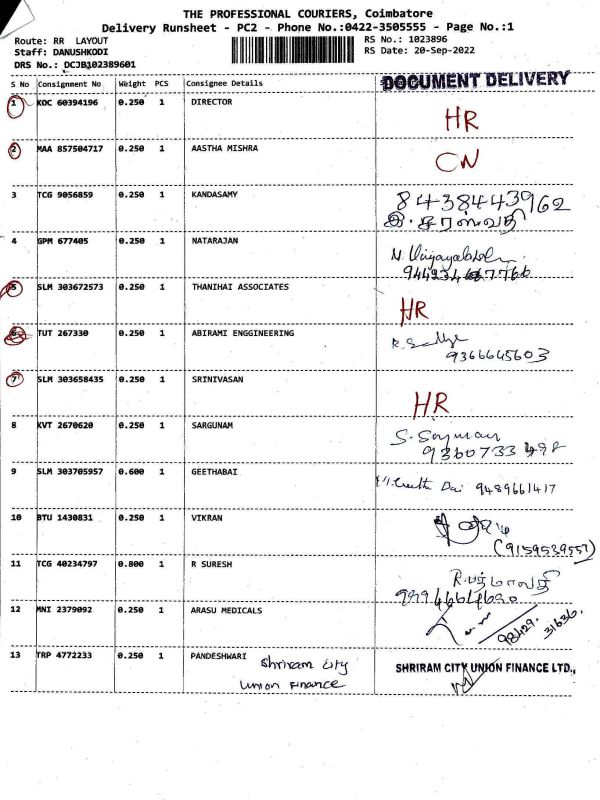 THE PROFESSIONAL COURIERS, Coimbatore
Delivery Runsheet - PC2 - Phone No.:0422-3505555 - Page No.:1
Route: RR LAYOUT RS No.: 1023896
Staff: DANUSHKODI RS Date: 20-Sep-2022
DRS No.: DCJB102389601
S No Consignment No Weight PCS Consignee Details DOCUMENT DELIVERY
1 KOC 60394196 0.250 1 DIRECTOR
HR
2 MAA 857504717 0.250 1 AASTHA MISHRA
CN
3 TCG 9056859 0.250 1 KANDASAMY 8438443962
இ. சரஸ்வதி
4 GPM 677405 0.250 1 NATARAJAN
5 SLM 303672573 0.250 1 THANIHAI ASSOCIATES
HR
6 TUT 267330 0.250 1 ABIRAMI ENGGINEERING
9366645603
7 SLM 303658435 0.250 1 SRINIVASAN
HR
8 KVT 2670620 0.250 1 SARGUNAM
9 SLM 303705957 0.600 1 GEETHABAI
9489661417
10 BTU 1430831 0.250 1 VIKRAN
(9159539557)
11 TCG 40234797 0.800 1 R SURESH
R. பத்மாவதி
12 MNI 2379092 0.250 1 ARASU MEDICALS
98429. 31636.
13 TRP 4772233 0.250 1 PANDESHWARI Shriram city
union Finance
SHRIRAM CITY UNION FINANCE LTD.,